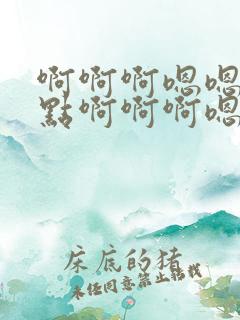 啊啊啊嗯嗯
點啊啊啊嗯
床底的猪
未经同意禁止转载